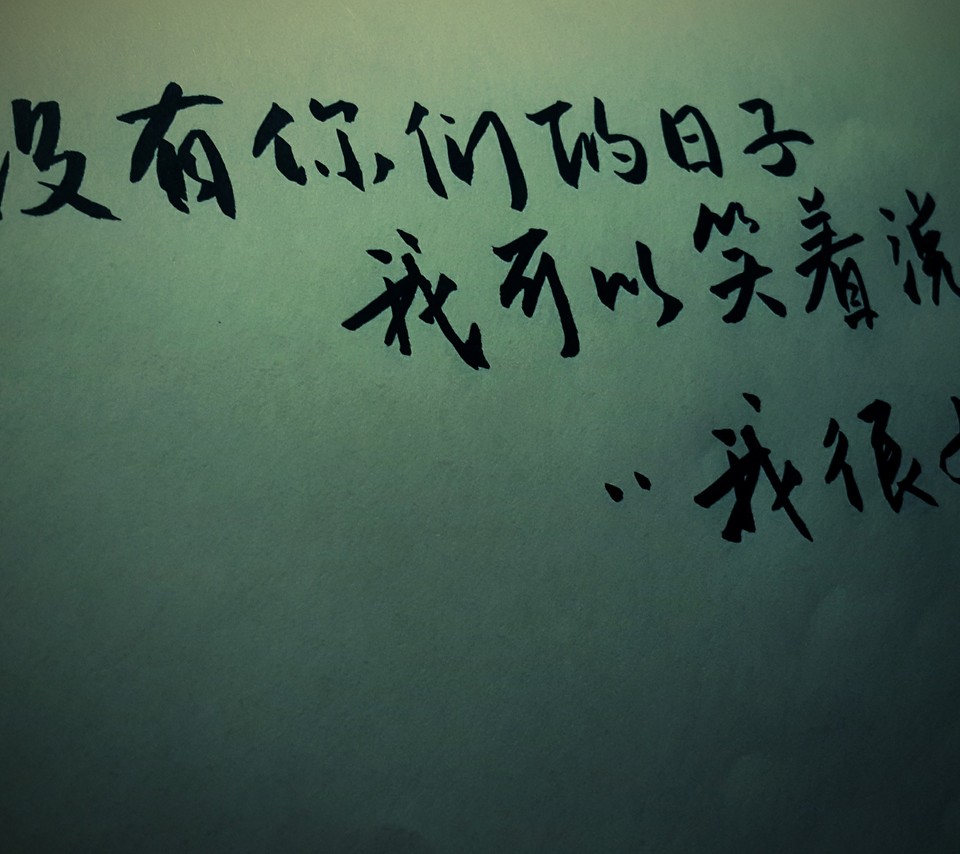 没有你们的日子
我可以笑着说
“我很